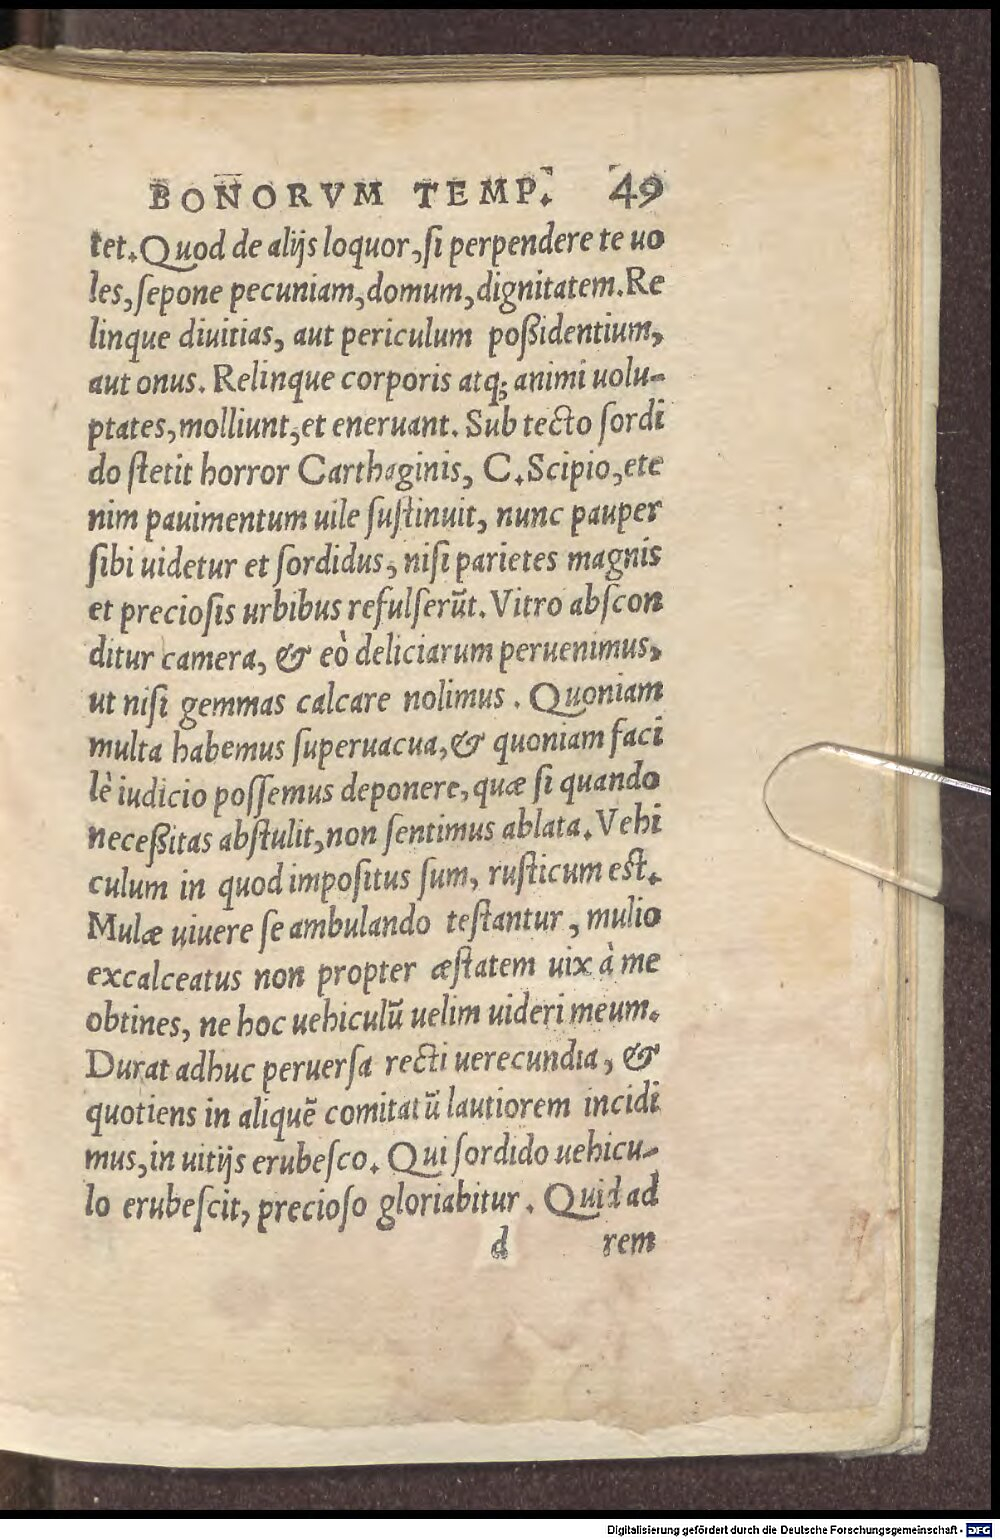 BONORVM TEMP. 49
tet. Quod de alijs loquor, ſi perpendere te uo
les, ſepone pecuniam, domum, dignitatem. Re
linque diuitias, aut periculum poßidentium,
aut onus. Relinque corporis atq; animi uolu-
ptates, molliunt, et eneruant. Sub tecto ſordi
do ſtetit horror Carthaginis, C. Scipio, ete
nim pauimentum uile ſuſtinuit, nunc pauper
ſibi uidetur et ſordidus, niſi parietes magnis
et precioſis urbibus refulſerūt. Vitro abſcon
ditur camera, & eò deliciarum peruenimus,
ut niſi gemmas calcare nolimus. Quoniam
multa habemus ſuperuacua, & quoniam faci
lè iudicio poſſemus deponere, quæ ſi quando
neceßitas abſtulit, non ſentimus ablata. Vehi
culum in quod impoſitus ſum, ruſticum eſt.
Mulæ uiuere ſe ambulando teſtantur, mulio
excalceatus non propter æſtatem uix à me
obtines, ne hoc uehiculū uelim uideri meum.
Durat adhuc peruerſa recti uerecundia, &
quotiens in aliquē comitatū lautiorem incidi
mus, in uitijs erubeſco. Qui ſordido uehicu-
lo erubeſcit, precioſo gloriabitur. Quid ad
d rem
Digitalisierung gefördert durch die Deutsche Forschungsgemeinschaft - DFG